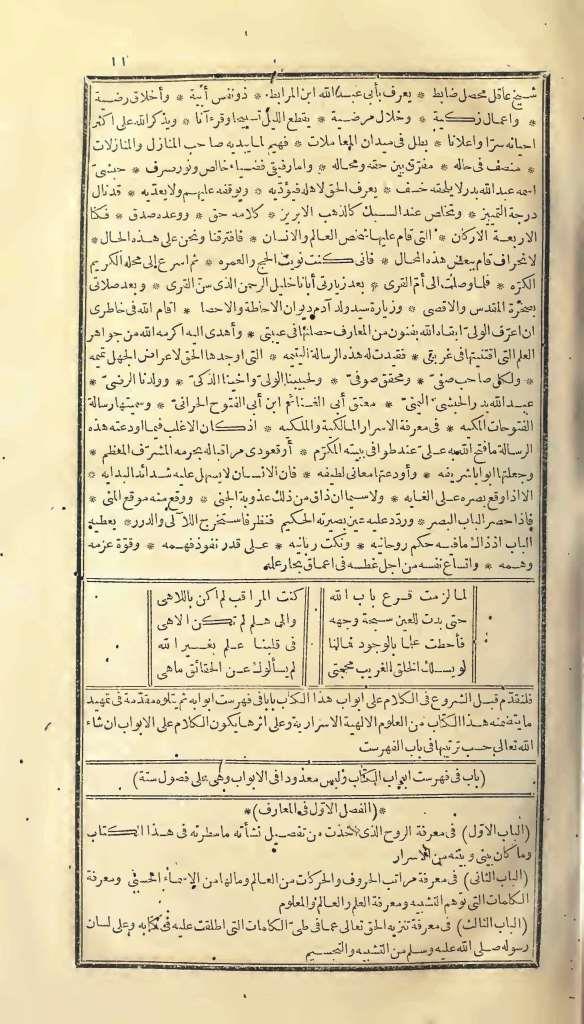 ١١
شيخ عاقل محصل ضابط * يعرف بأبي عبد الله ابن المرابط * ذو نفس أبية * وأخلاق رضية
* واعمال زكية * وخلال مرضية * يقطع الليل تسبيحا وقرءآنا * ويذكر الله على اكثر
احيانه سرا واعلانا * بطل في ميدان المعاملات * فهيم لما يبديه صاحب المنازل والمنازلات
* منصف في حاله * مفرق بين حقه ومحاله * واما رفيقى فضياء خالص ونور صرف * حبشى
اسمه عبد الله بدر لا يلحقه خسف * يعرف الحق لاهله فيؤديه * ويوقفه عليهم ولا يعديه * قد نال
درجة التمييز * وتخلص عند السبك كالذهب الابريز * كلامه حق * ووعده صدق * فكنا
الاربعة الاركان * التى قام عليها شخص العالم والانسان * فافترقنا ونحن على هذه الحال *
لانحراف قام ببعض هذه المحال * فانى كنت نويت الحج والعمره * ثم اسرع الى مجلسه الكريم
الكره * فلما وصلت الى أم القرى * بعد زيارتى أبانا خليل الرحمن الذى سن القرى * وبعد صلاتى
بصخرة المقدس والاقصى * وزيارة سيد ولد آدم ديوان الاحاطة والاحصا * اقام الله فى خاطرى
ان اعرف الولى ابقاه الله بفنون من المعارف حصلتها فى غيبتى * وأهدى اليه اكرمه الله من جواهر
العلم التى اقتنيتها فى غربتى * فقيدت له هذه الرسالة اليتيمه * التى اوجدها الحق لاعراض الجهل تميمه
* ولكل صاحب صفى * ومحقق صوفى * ولحبيبنا الولى واخينا الذكى * وولدنا الرضى *
عبد الله بدر الحبشى اليمنى * معتق أبى الغنائم ابن أبى الفتوح الحرانى * وسميتها رسالة
الفتوحات المكيه * فى معرفة الاسرار المالكية والملكيه * اذ كان الاغلب فيما اودعته هذه
الرسالة ما فتح الله به على عند طوافى ببيته المكرم * أو قعودى مراقبا له بحرمه المشرف المعظم *
وجعلتها ابوابا شريفه * وأودعتها معانى لطيفه * فان الانسان لا يسهل عليه شدائد البدايه *
الا اذا وقع بصره على الغايه * ولا سيما ان ذاق من ذلك عذوبة الجنى * ووقع منه موقع المنى *
فاذا حصر الباب البصر * وردد عليه عين بصيرته الحكيم فنظر فاستخرج اللآلى والدرر * يعطيه
الباب اذ ذاك ما فيه حكم روحانيه * ونكت ربانيه * على قدر نفوذ فهمه * وقوة عزمه
وهمه * واتساع نفسه من اجل غطسه فى اعماق بحار علمه
لما لزمت قرع باب الله كنت المراقب لم اكن باللاهى
حتى بدت للعين سبحة وجهه والى هلم لم تكن الا هى
فأحطت علما بالوجود فما لنا فى قلبنا علم بغير الله
لو يسلك الخلق الغريب محجتى لم يسألوك عن الحقائق ما هى
فلنقدم قبل الشروع فى الكلام على ابواب هذا الكتاب بابا فى فهرست ابوابه ثم يتلوه مقدمة فى تمهيد
ما يتضمنه هذا الكتاب من العلوم الالهية الاسرارية وعلى اثرها يكون الكلام على الابواب ان شاء
الله تعالى حسب ترتيبها فى باب الفهرست
(باب فى فهرست ابواب الكتاب وليس معدودا فى الابواب وهى على فصول ستة)
*(الفصل الاول فى المعارف)*
(الباب الاول) فى معرفة الروح الذى اخذت من تفصيل نشأته ما سطرته فى هذا الكتاب
وما كان بينى وبينه من الاسرار
(الباب الثانى) فى معرفة مراتب الحروف والحركات من العالم ومالها من الاسماء الحسنى ومعرفة
الكلمات التى توهم التشبيه ومعرفة العلم والعالم والمعلوم
(الباب الثالث) فى معرفة تنزيه الحق تعالى عما فى طى الكلمات التى اطلقت عليه فى كتابه وعلى لسان
رسوله صلى الله عليه وسلم من التشبيه والتجسيم